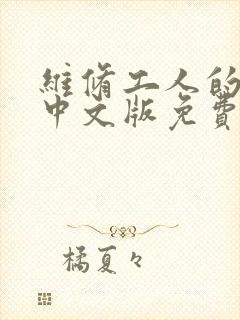 維脩工人的
中文版免費
橘夏々